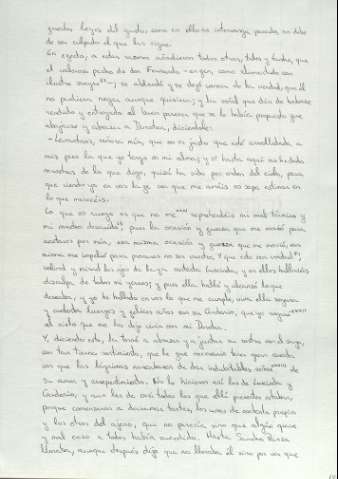 fuertes leyes del gusto, como en ello no intervenga pecado, no debe
de ser culpado el que las sigue.
En efecto, a estas razones añadieron todos otras, tales y tantas, que
el valeroso pecho de don Fernando - en fin, como alimentado con
ilustre sangre - se ablandó y se dejó vencer de la verdad, que él
no pudiera negar aunque quisiera; y la señal que dio de haberse
rendido y entregado al buen parecer que se le había propuesto fue
abajarse y abrazar a Dorotea, diciéndole:
- Levantaos, señora mía, que no es justo que esté arrodillada a
mis pies la que yo tengo en mi alma; y si hasta aquí no he dado
muestras de lo que digo, quizá ha sido por orden del cielo, para
que viendo yo en vos la fe con que me amáis os sepa estimar en
lo que merecéis.
Lo que os ruego es que no me reprehendáis mi mal término y
mi mucho descuido, pues la ocasión y fuerza que me movió para
aceptaros por mía, esa misma ocasión y fuerza que me movió, esa
misma me impelió para procurar no ser vuestro. Y que esto sea verdad,
volved y mirad los ojos de la ya contenta Luscinda, y en ellos hallaréis
disculpa de todos mis yerros; y pues ella halló y alcanzó lo que
deseaba, y yo he hallado en vos lo que me cumple, viva ella segura
y contenta luengos y felices años con su Cardenio, que yo rogaré
al cielo que me los deje vivir con mi Dorotea.
Y, diciendo esto, la tornó a abrazar y a juntar su rostro con el suyo,
con tan tierno sentimiento, que le fue necesario tener gran cuenta
con que las lágrimas no acabasen de dar indubitables señas de
su amor y arrepentimiento. No lo hicieron así las de Luscinda y
Cardenio, y aun las de casi todos los que allí presentes estaban,
porque comenzaron a derramar tantas, los unos de contento propio
y los otros del ajeno, que no parecía sino que algún grave
y mal caso a todos había sucedido. Hasta Sancho Panza
lloraba, aunque después dijo que no lloraba él sino por ver que